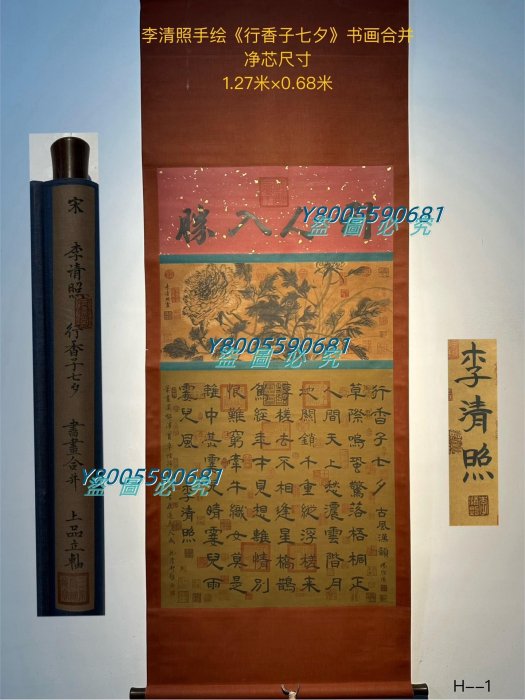 李清照手绘《行香子七夕》书画合并
净芯尺寸
1.27米×0.68米
宋 李清照 行香子七夕 書畫合并 上品立軸
引人入勝
Y8005590681
盜圖必究
Y8005590681
盜圖必究
Y8005590681
盜圖必究
行香子七夕 古風漢韻
草際鳴蛩驚落梧桐正
人間天上愁濃雲階月
地關鎖千重縱浮槎来
槎去不相逢星橋鵲
駕經年才見想離情別
恨難窮牽牛織女莫是
離中甚霎兒晴霎兒雨
霎兒風 李清照
李清照
H--1